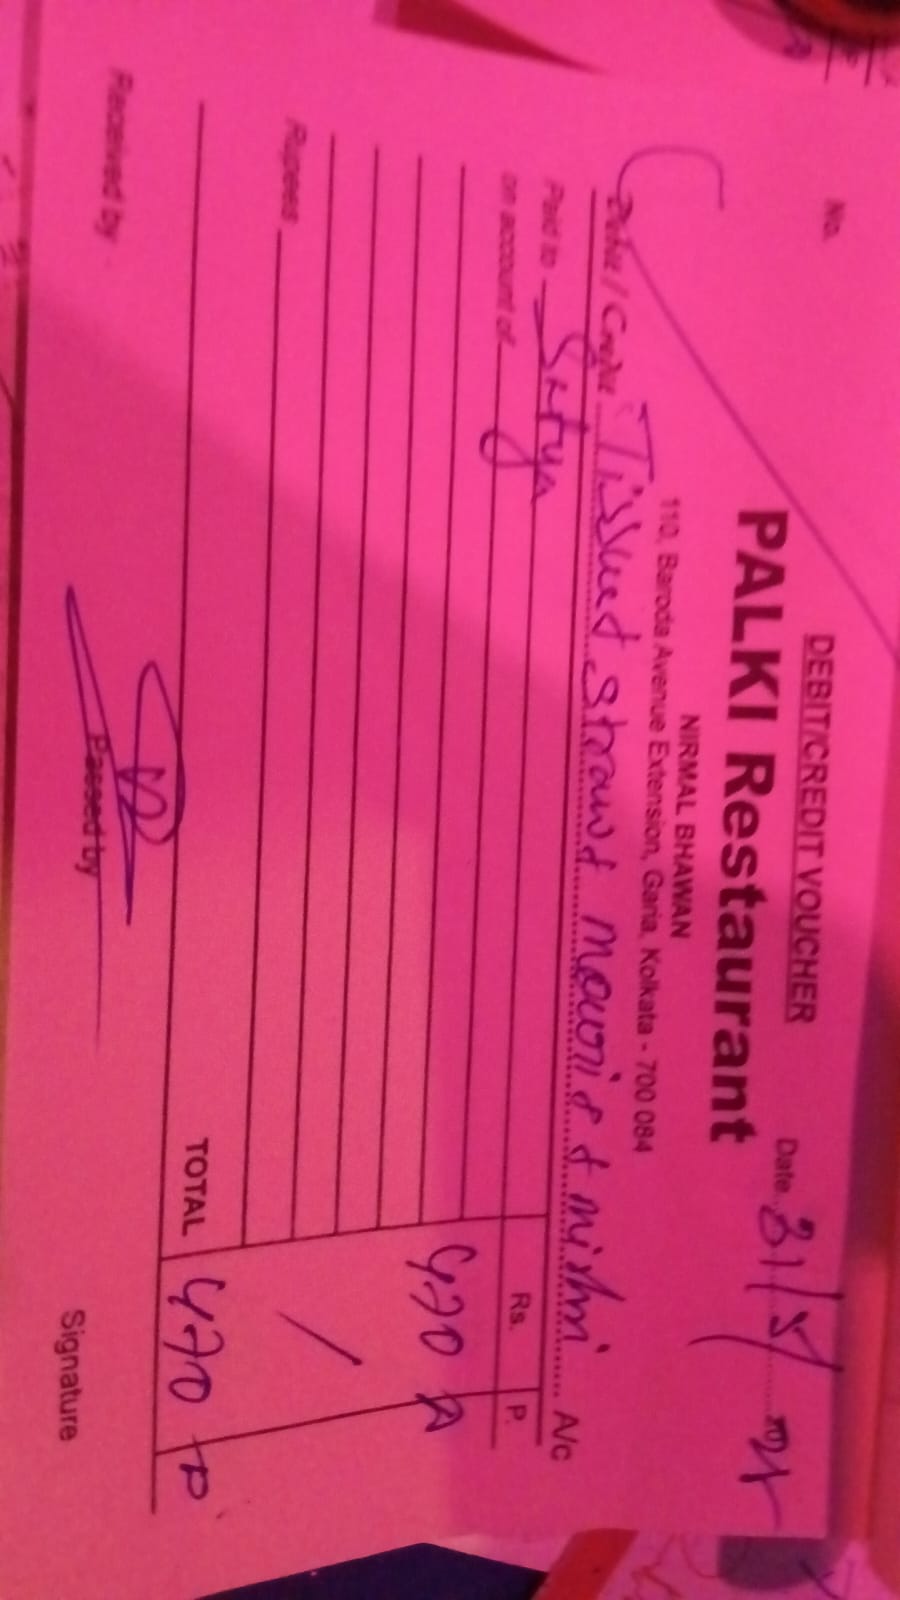 No.
DEBIT/CREDIT VOUCHER
Date 31/5/
PALKI Restaurant
NIRMAL BHAWAN
110, Baroda Avenue Extension, Garia, Kolkata - 700 084
Debit / Credit Tissued straws A/c
Paid to Satya
on account of
Rs. P.
470
Rupees
TOTAL 470
Received by
Passed by
Signature